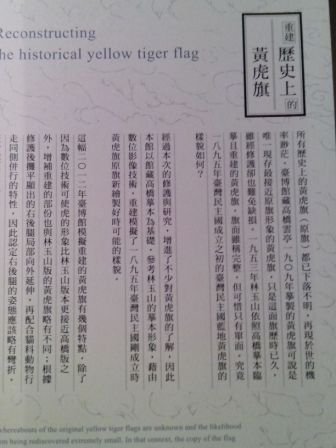 Reconstructing
the historical yellow tiger flag
重建
歷史上的
黃虎旗
所有歷史上的黃虎旗︵原旗︶都已下落不明，再現於世的機
率渺茫。臺博館藏高橋雲亭一九〇九年摹製的黃虎旗可說是
唯一現存最接近原旗形象的黃虎旗。只是這面旗歷時已久，
雖經修護卻也難免缺損。一九五三年林玉山依照高橋摹本臨
摹且重建的黃虎旗，旗面雖稱完整，但可惜只有單面。究竟
一八九五年臺灣民主國成立之初的臺灣民主國藍地黃虎旗的
樣貌如何？
經過本次的修護與研究，增進了不少對黃虎旗的了解，因此
本館以館藏高橋摹本為基礎，參考林玉山的摹本形象，藉由
數位影像技術，重建模擬了一八九五年臺灣民主國剛成立時
黃虎旗原旗新繪製好時可能的樣貌。
這幅二〇一二年臺博館模擬重建的黃虎旗有幾個特點，除了
因為數位技術可使虎的形象比林玉山版本更接近高橋版之
外，增補重建的部份也與林玉山版的黃虎旗略有不同；根據
修護後攤平顯出的右後腿局部向外延伸，再配合貓科動物行
走同側併行的特性，因此認定右後腿的姿態應該略有彎折，
whereabouts of the original yellow tiger flags are unknown and the likelihood
being rediscovered extremely small. In that context, the copy of the flag